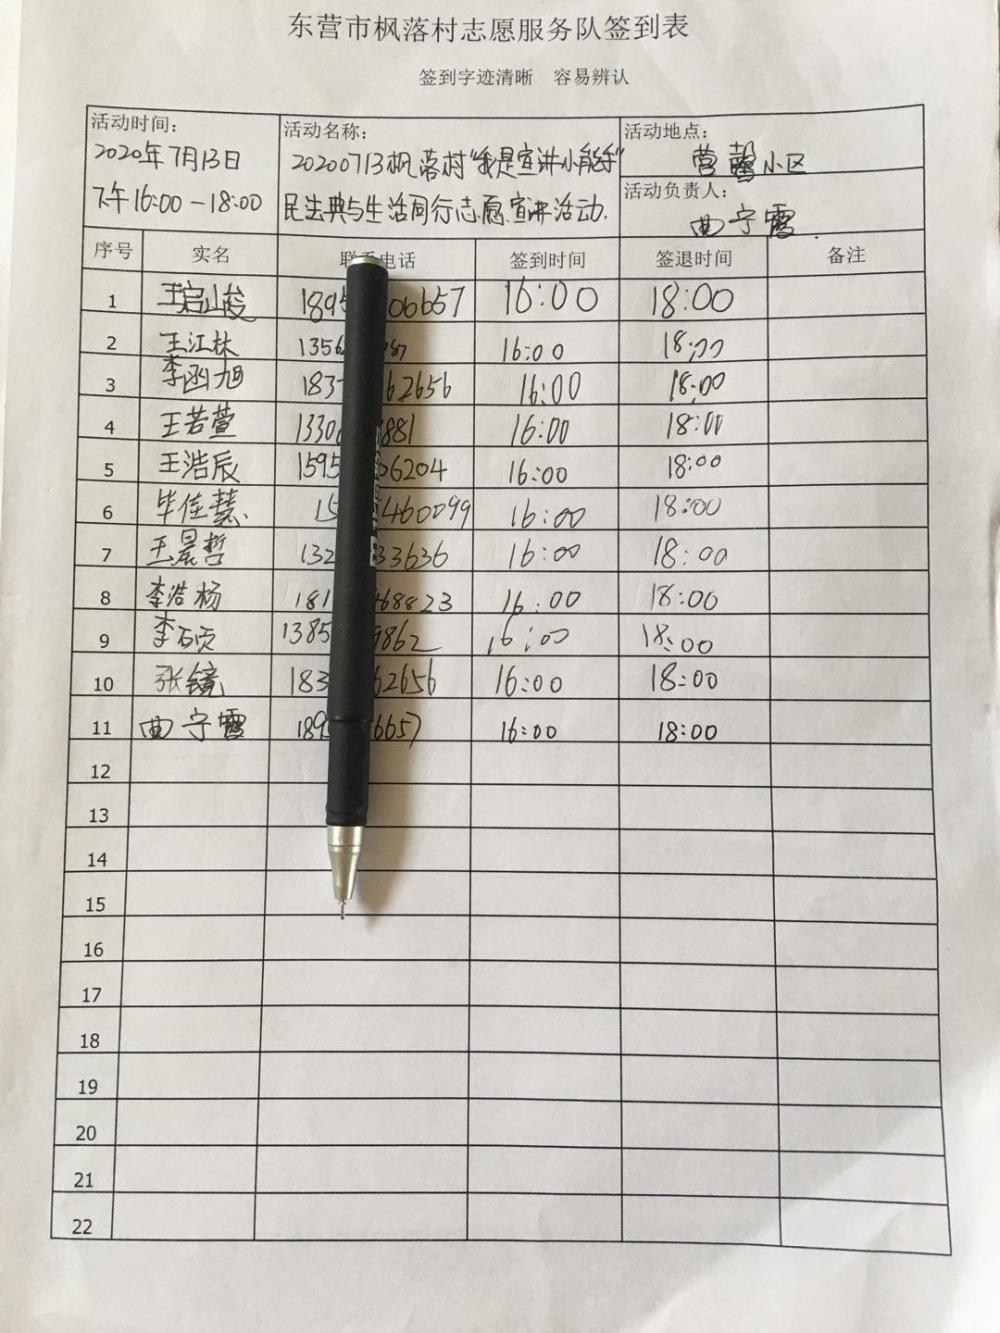 东营市枫落村志愿服务队签到表
签到字迹清晰 容易辨认
活动时间： 活动名称： 活动地点：
2020年7月13日 20200713枫落村"我是宣讲小能手" 营馨小区
下午16:00-18:00 民法典与生活同行志愿宣讲活动. 活动负责人：
曲宁雪
序号 实名 联系电话 签到时间 签退时间 备注
1 王启山俊 1895 06657 16:00 18:00
2 王江林 1356 87 16:00 18:00
3 李函旭 183 62656 16:00 18:00
4 王若萱 1330 881 16:00 18:00
5 王浩辰 1595 06204 16:00 18:00
6 毕佳慧 15 460099 16:00 18:00
7 王晨哲 132 33636 16:00 18:00
8 李浩杨 181 468823 16:00 18:00
9 李 1385 9862 16:00 18:00
10 张镜 183 62656 16:00 18:00
11 曲宁雪 189 6657 16:00 18:00
12
13
14
15
16
17
18
19
20
21
22